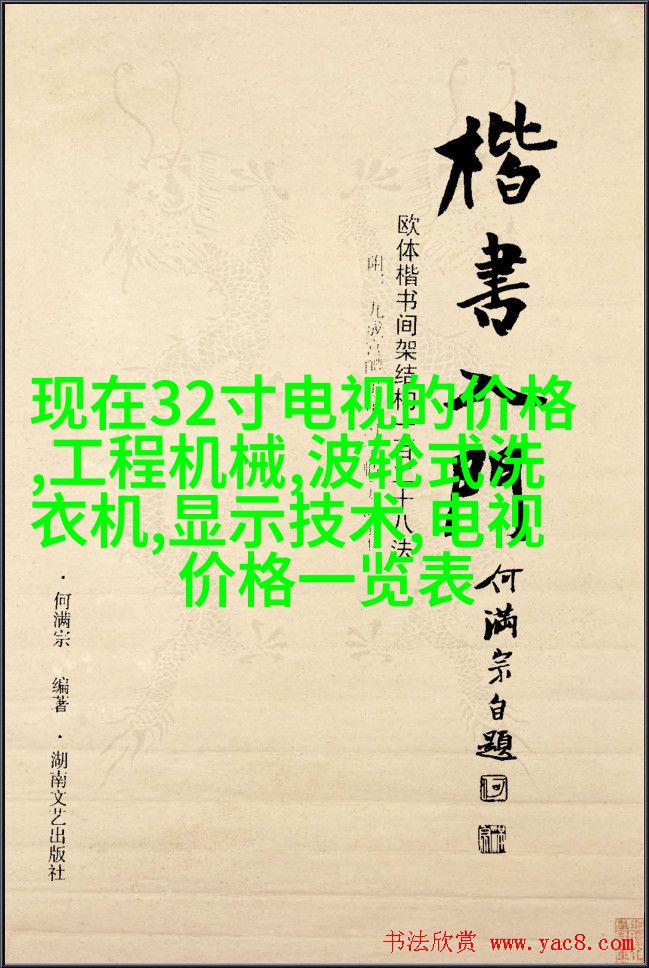 楷書入門
欧体楷书间架结构一百二十八法
何满宗自题
现在32寸电视的价格
,工程机械,波轮式洗
衣机,显示技术,电视
价格一览表
·何满宗 编著·湖南文艺出版社
书法欣赏 www.yac8.com